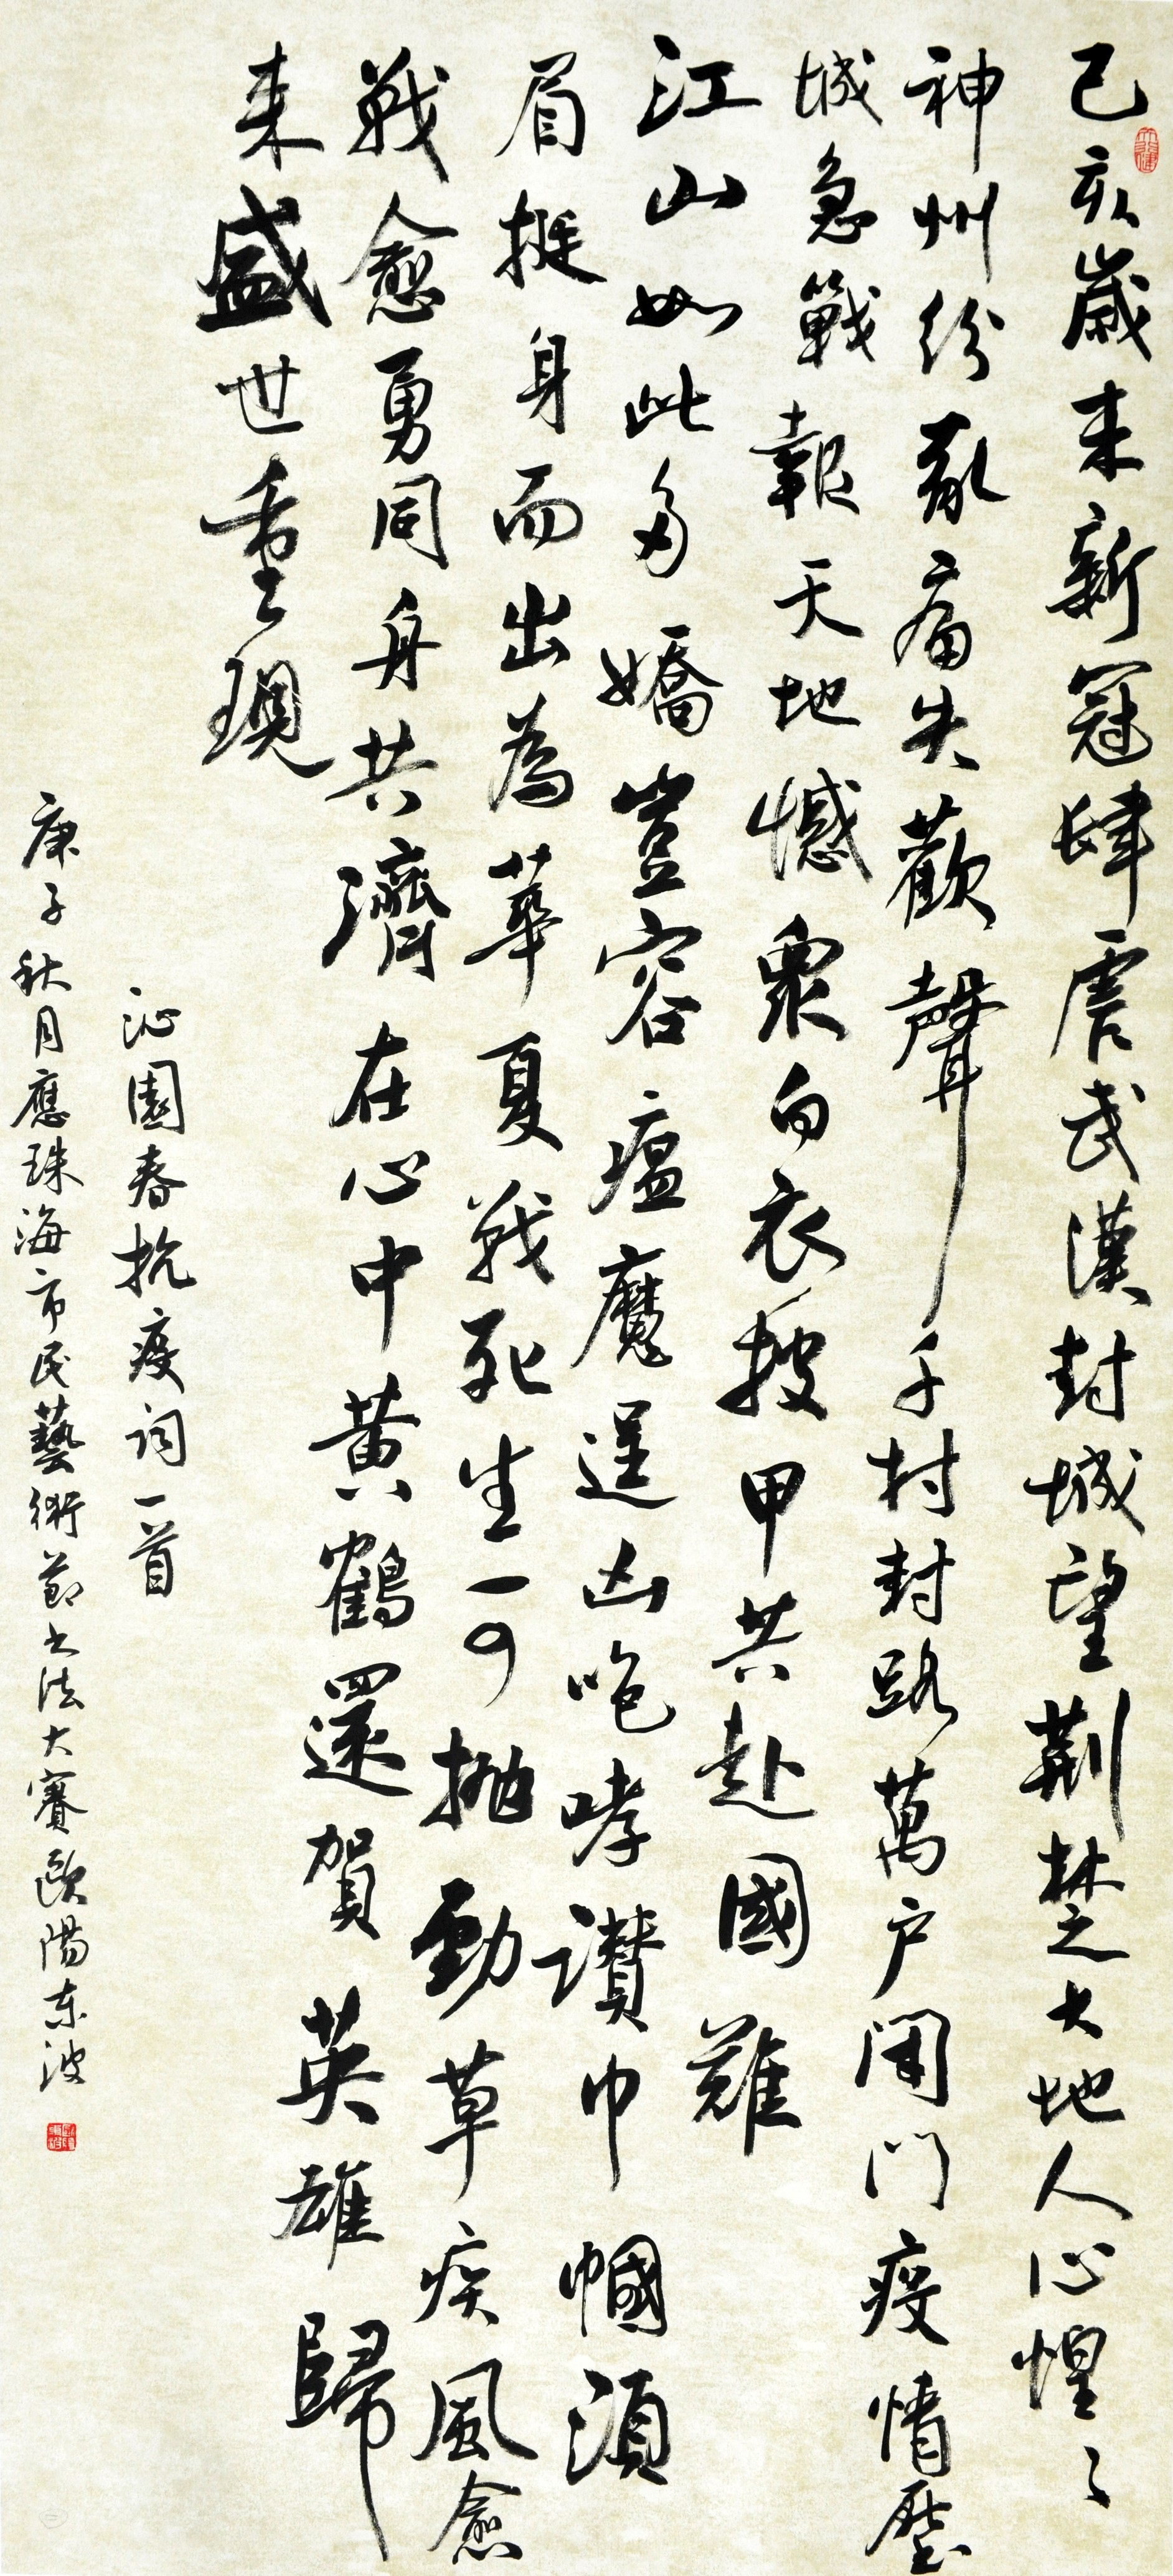 己亥歲来新冠肆虐武漢封城望荆楚大地人心惶々
神州紛亂痛失歡聲千村封路萬户闭門疫情壓
城急戰報天地憾衆白衣披甲共赴國難
江山如此多嬌豈容瘟魔逞凶咆哮讃巾幗須
眉挺身而出為華夏戦死生一可抛勁草疾風愈
戦愈勇同舟共濟在心中黄鶴還賀英雄歸
来盛世重現
沁園春抗疫词一首
庚子秋月應珠海市民藝術節书法大賽歐陽东波